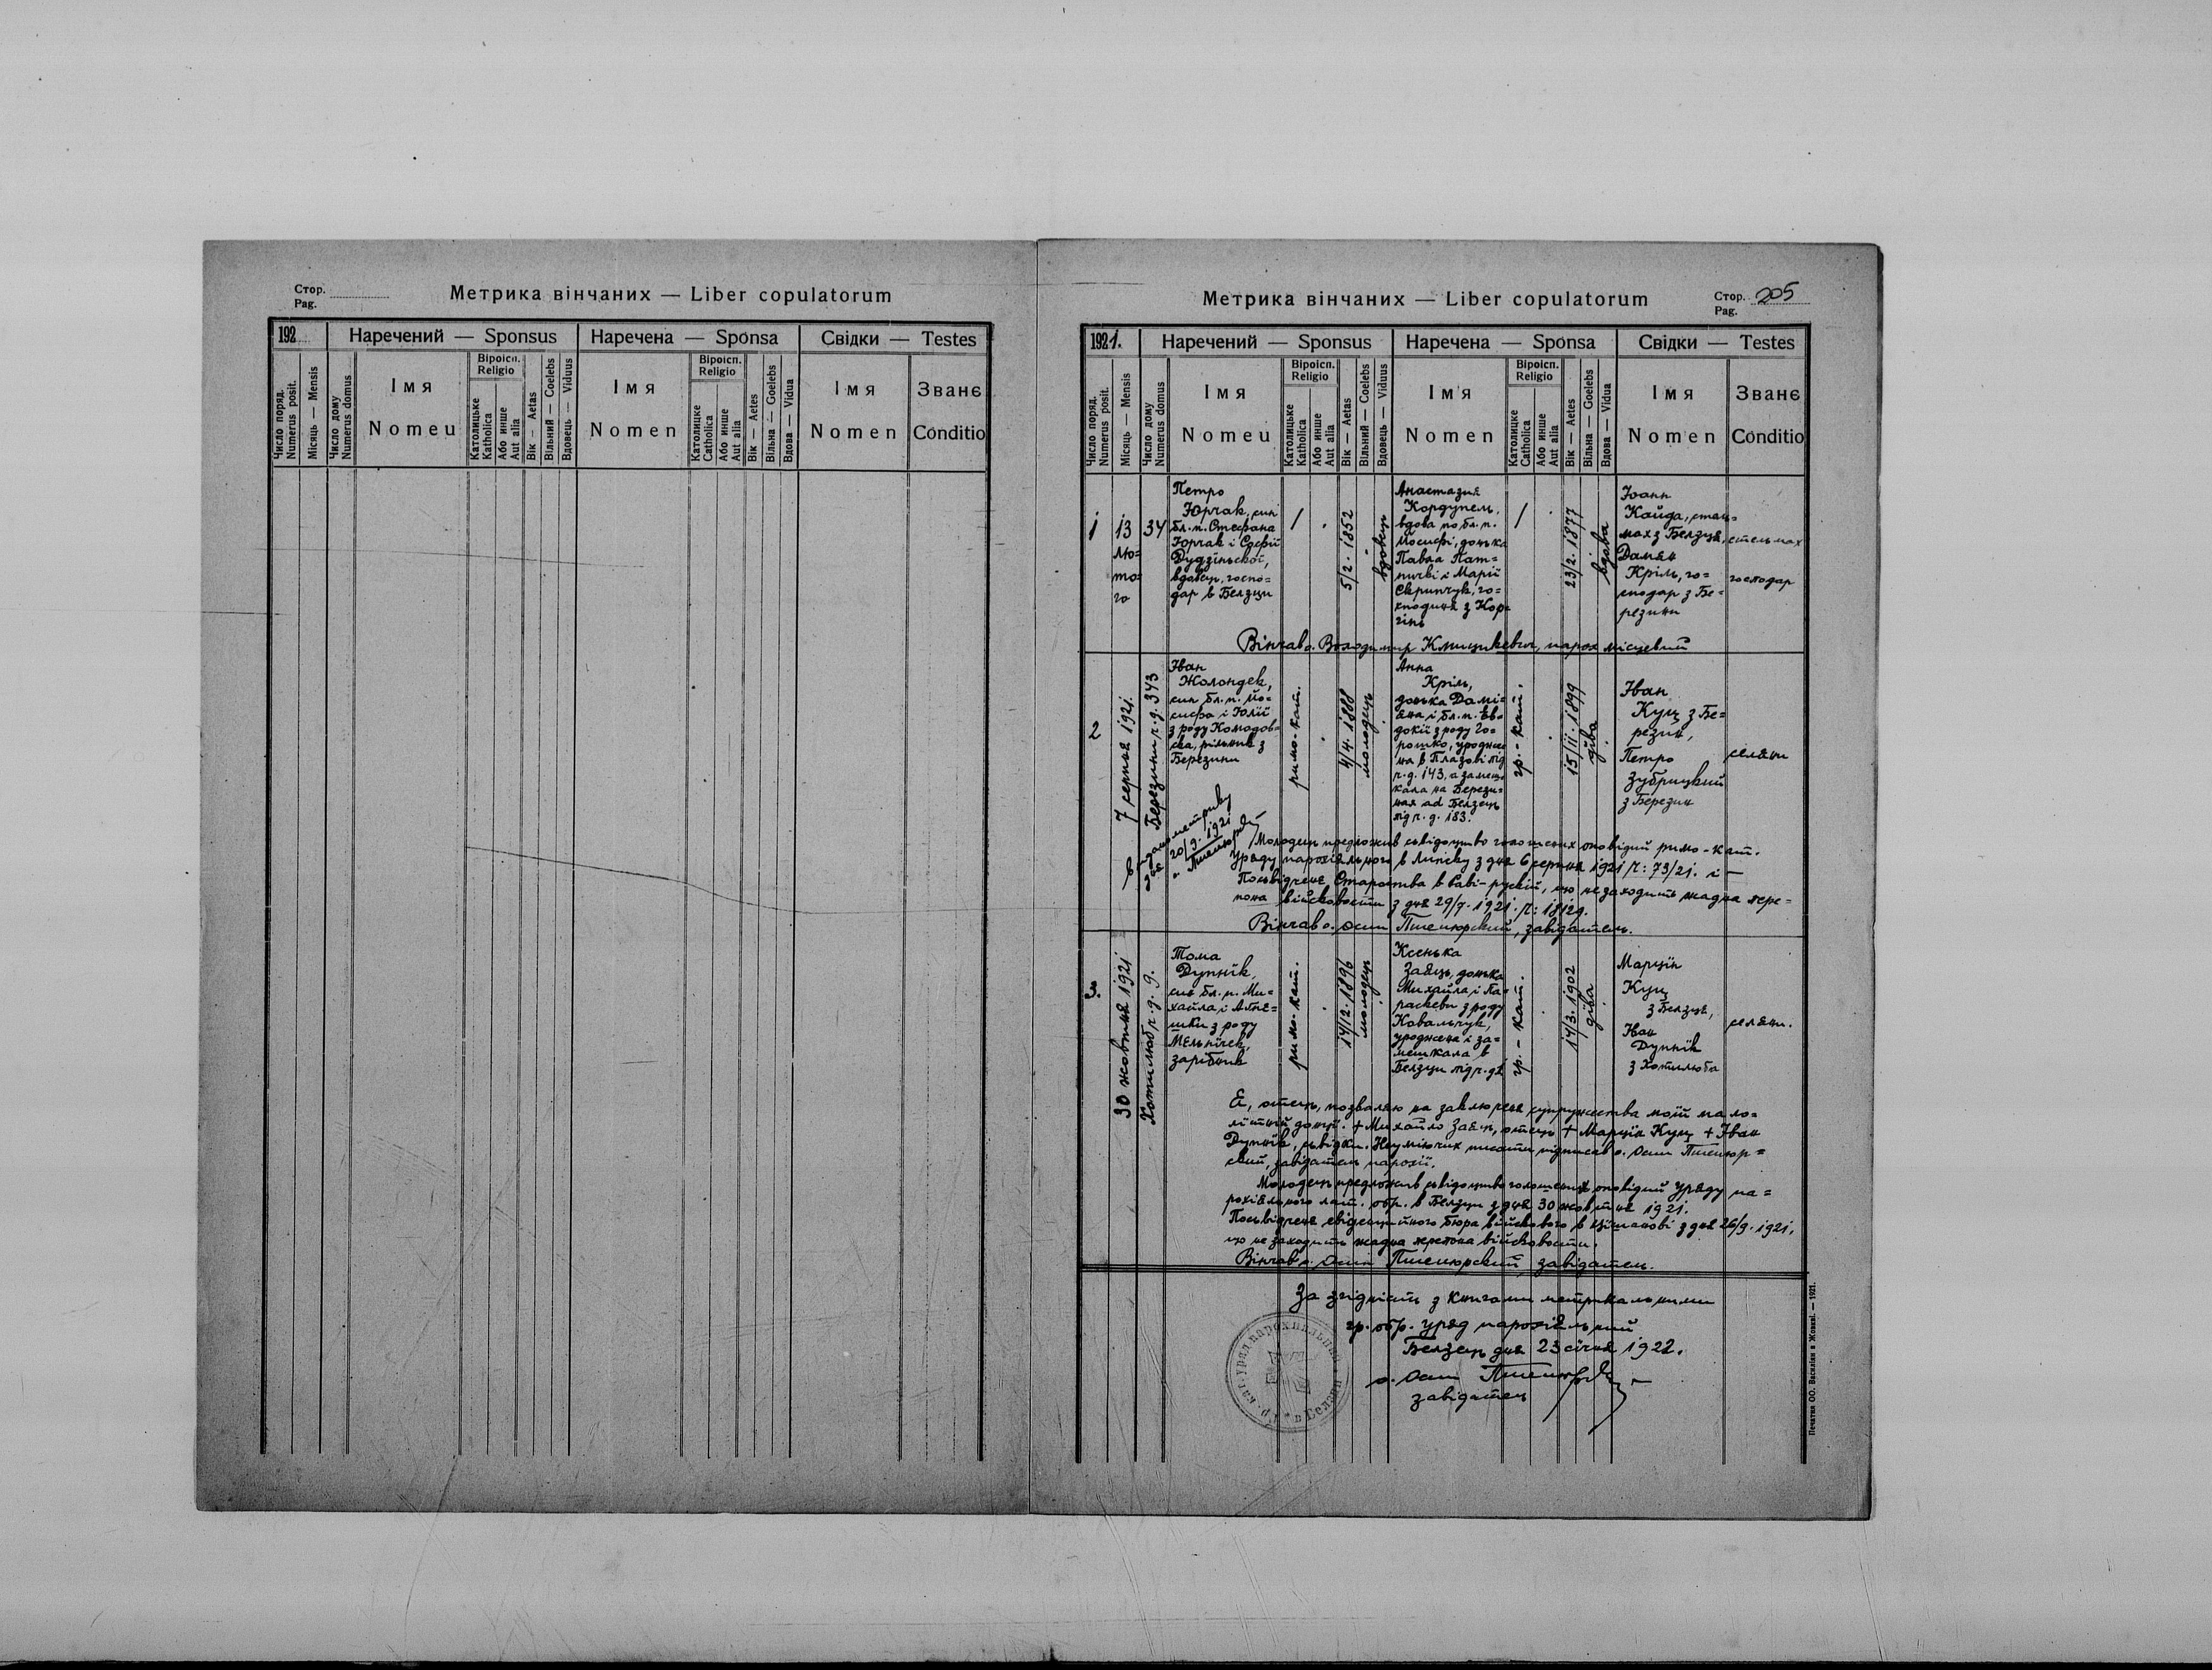 Стор.
Pag.
Метрика вінчаних — Liber copulatorum
192
Наречений — Sponsus
Наречена — Sponsa
Свідки — Testes
Число поряд.
Numerus posit.
Місяць — Mensis
Число дому
Numerus domus
Імя
Nomeu
Віроісп.
Religio
Католицьке
Katholica
Або инше
Aut alia
Вік — Aetas
Вільний — Coelebs
Вдовець — Viduus
Імя
Nomen
Віроісп.
Religio
Католицке
Catholica
Або инше
Aut alia
Вік — Aetes
Вільна — Goelebs
Вдова — Vidua
Імя
Nomen
Званє
Conditio
Метрика вінчаних — Liber copulatorum
Стор. 205
Pag.
1921.
Наречений — Sponsus
Наречена — Sponsa
Свідки — Testes
Число поряд.
Numerus posit.
Місяць — Mensis
Число дому
Numerus domus
Імя
Nomeu
Віроісп.
Religio
Католицьке
Katholica
Або инше
Aut alia
Вік — Aetas
Вільний — Coelebs
Вдовець — Viduus
Імя
Nomen
Віроісп.
Religio
Католицке
Catholica
Або инше
Aut alia
Вік — Aetes
Вільна — Goelebs
Вдова — Vidua
Імя
Nomen
Званє
Conditio
1
13
лю=
то=
го
34
Петро
Юрчак, син
бл. п. Стефана
Юрчак і Софії
Дудзіньскої,
вдовець, госпо=
дар в Белзци
/
5/2. 1852
вдовець
Анастазия
Кордупель,
вдова по бл. п.
Йосифі, донька
Павла
і Марії
Скрипчук, го=
сподиня з
/
23/2. 1877
вдова
Іоанн
Кайда, стель=
мах з Белзця,
Дамян
Кріль, го=
сподар з Бе=
резини
стельмах
господар
Вінчав о. Володимир Кмицикевич, парох місцевий
2
7 серпня 1921.
Березини ч. д. 343
Іван
Жолондек,
син бл. п. Йо=
сифа і Юлії
з роду
рільник з
Березини
римо-кат.
4/4. 1888
молодець
Анна
Кріль,
донька Дамі=
яна і бл. п. Єв=
докії з роду Го=
рошко, уродже=
на в Плазові під
ч. д. 143, а замеш=
кала на Берези=
нах ad Белзець
під ч. д. 183.
гр.-кат.
15/11. 1899
діва
Іван
Куц з Бе=
резин,
Петро
Зубрицкий
з Березин
селяни
метрику
20/9. 1921
Молодець предложив сьвідоцтво голошених оповідий римо-кат.
Уряду парохіяльного в Липску з дня 6 серпня 1921 Ч: 73/21. і —
Посьвідченє Староства в Раві-рускій, що не заходить жадна пере=
пона війсковости з дня 29/7. 1921. Ч: 18129.
Вінчав о. Осип Пшепюрский, завідатель.
3.
30 жовтня 1921
Хотилюб ч. д. 9.
Тома
Дупнік,
син бл. п. Ми=
хайла і Агнє=
шки з роду
Мельнічек,
зарібник
римо. кат.
14/12. 1896
молодець
Ксенька
Заяць, донька
Михайла і Па=
раскеви з роду
Ковальчук,
уроджена і за=
мешкала в
Белзци під ч. д 1
гр.-кат.
14/3. 1902
діва
Марцін
Куц
з Белзця,
Іван
Дупнік
з Хотилюба
селяни.
Я, отець, позваляю на заключенє супружества моїй мало=
літній доньці. + Михайло Заяць, отець + Марцін Куц + Іван
Дупнік, сьвідки. Неуміючих писати підписав о. Осип Пшепюр=
ский, завідатель парохії.
Молодець предложив сьвідоцтво голошених оповідий Уряду па=
рохіяльного лат. обр. в Белзци з дня 30 жовтня 1921.
Посьвідченє евіденційного бюра війскового в Цішанові з дня 26/9. 1921.
що не заходить жадна перепона війсковости.
Вінчав о. Осип Пшепюрский, завідатель.
За згідність з книгами метрикальними
гр. обр. уряд парохіяльний
Белзець дня 23 січня 1922.
о. Осип Пшепюрский
завідатель
Гр.-кат. уряд парохіяльний в Белзци
Печатня ОО. Василіян в Жовкві. — 1921.